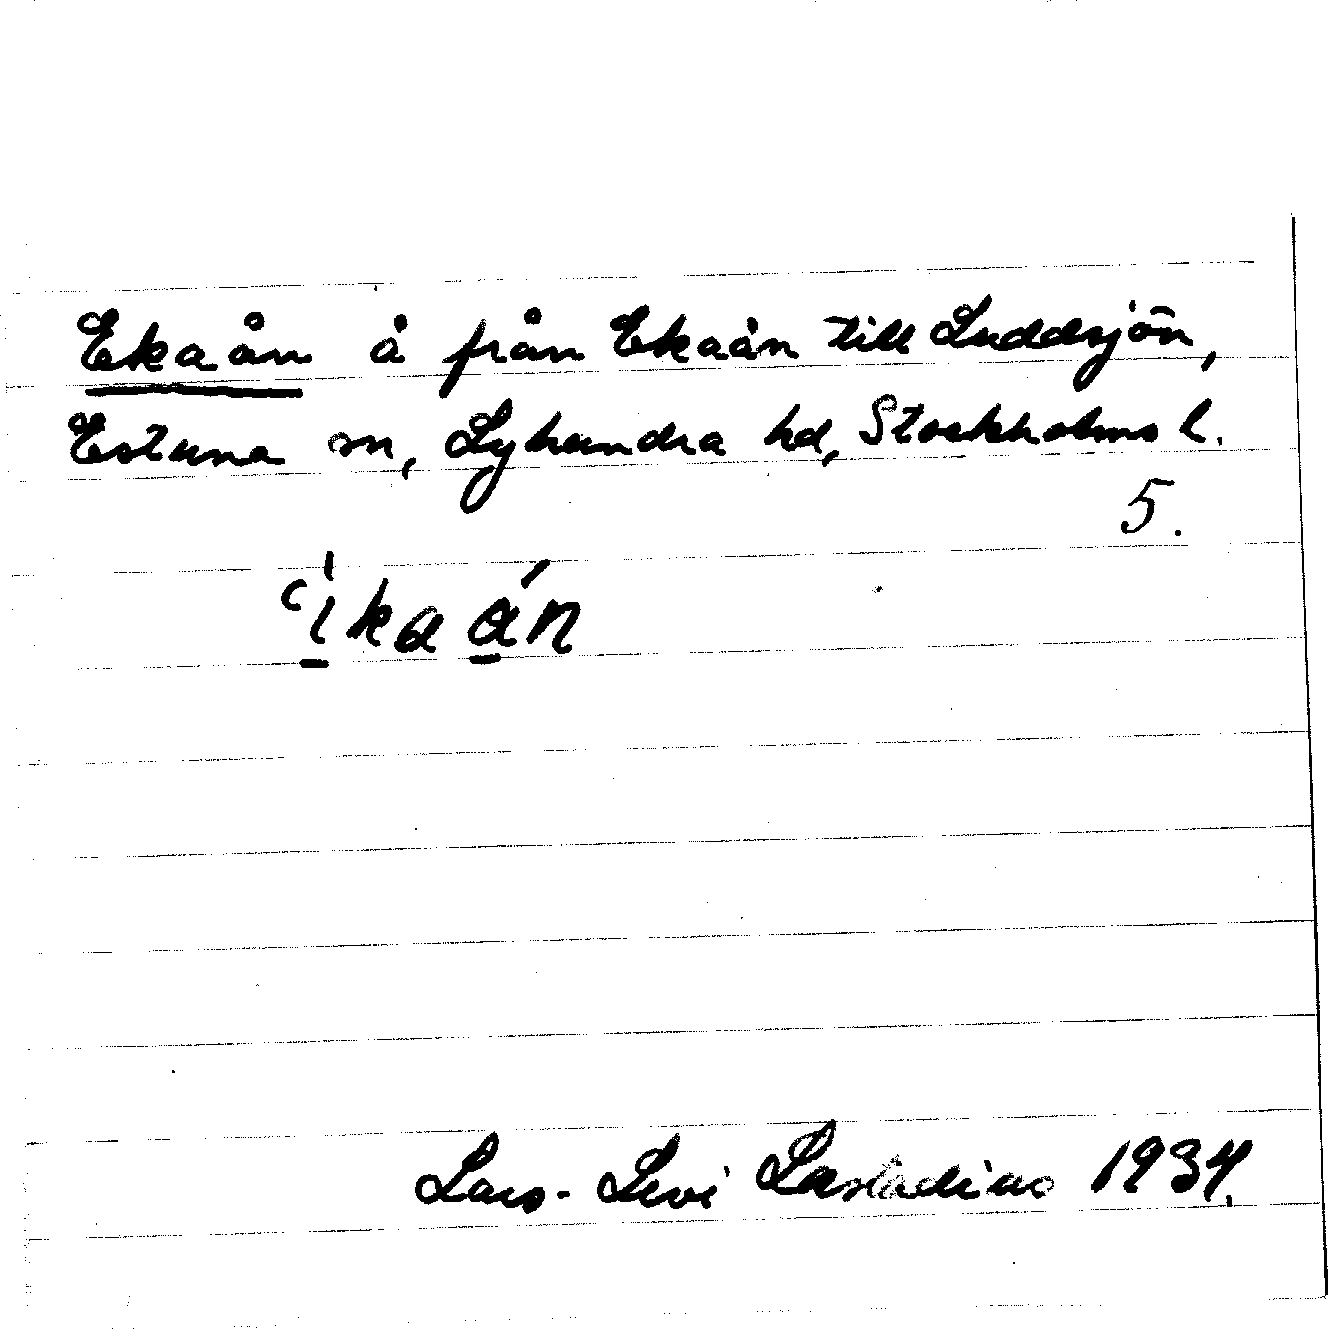 Ekaån å från Ekaån till Luddsjön,
Estuna sn, Lyhundra hd, Stockholms l.
5.
Lars-Levi Læstadius 1934.